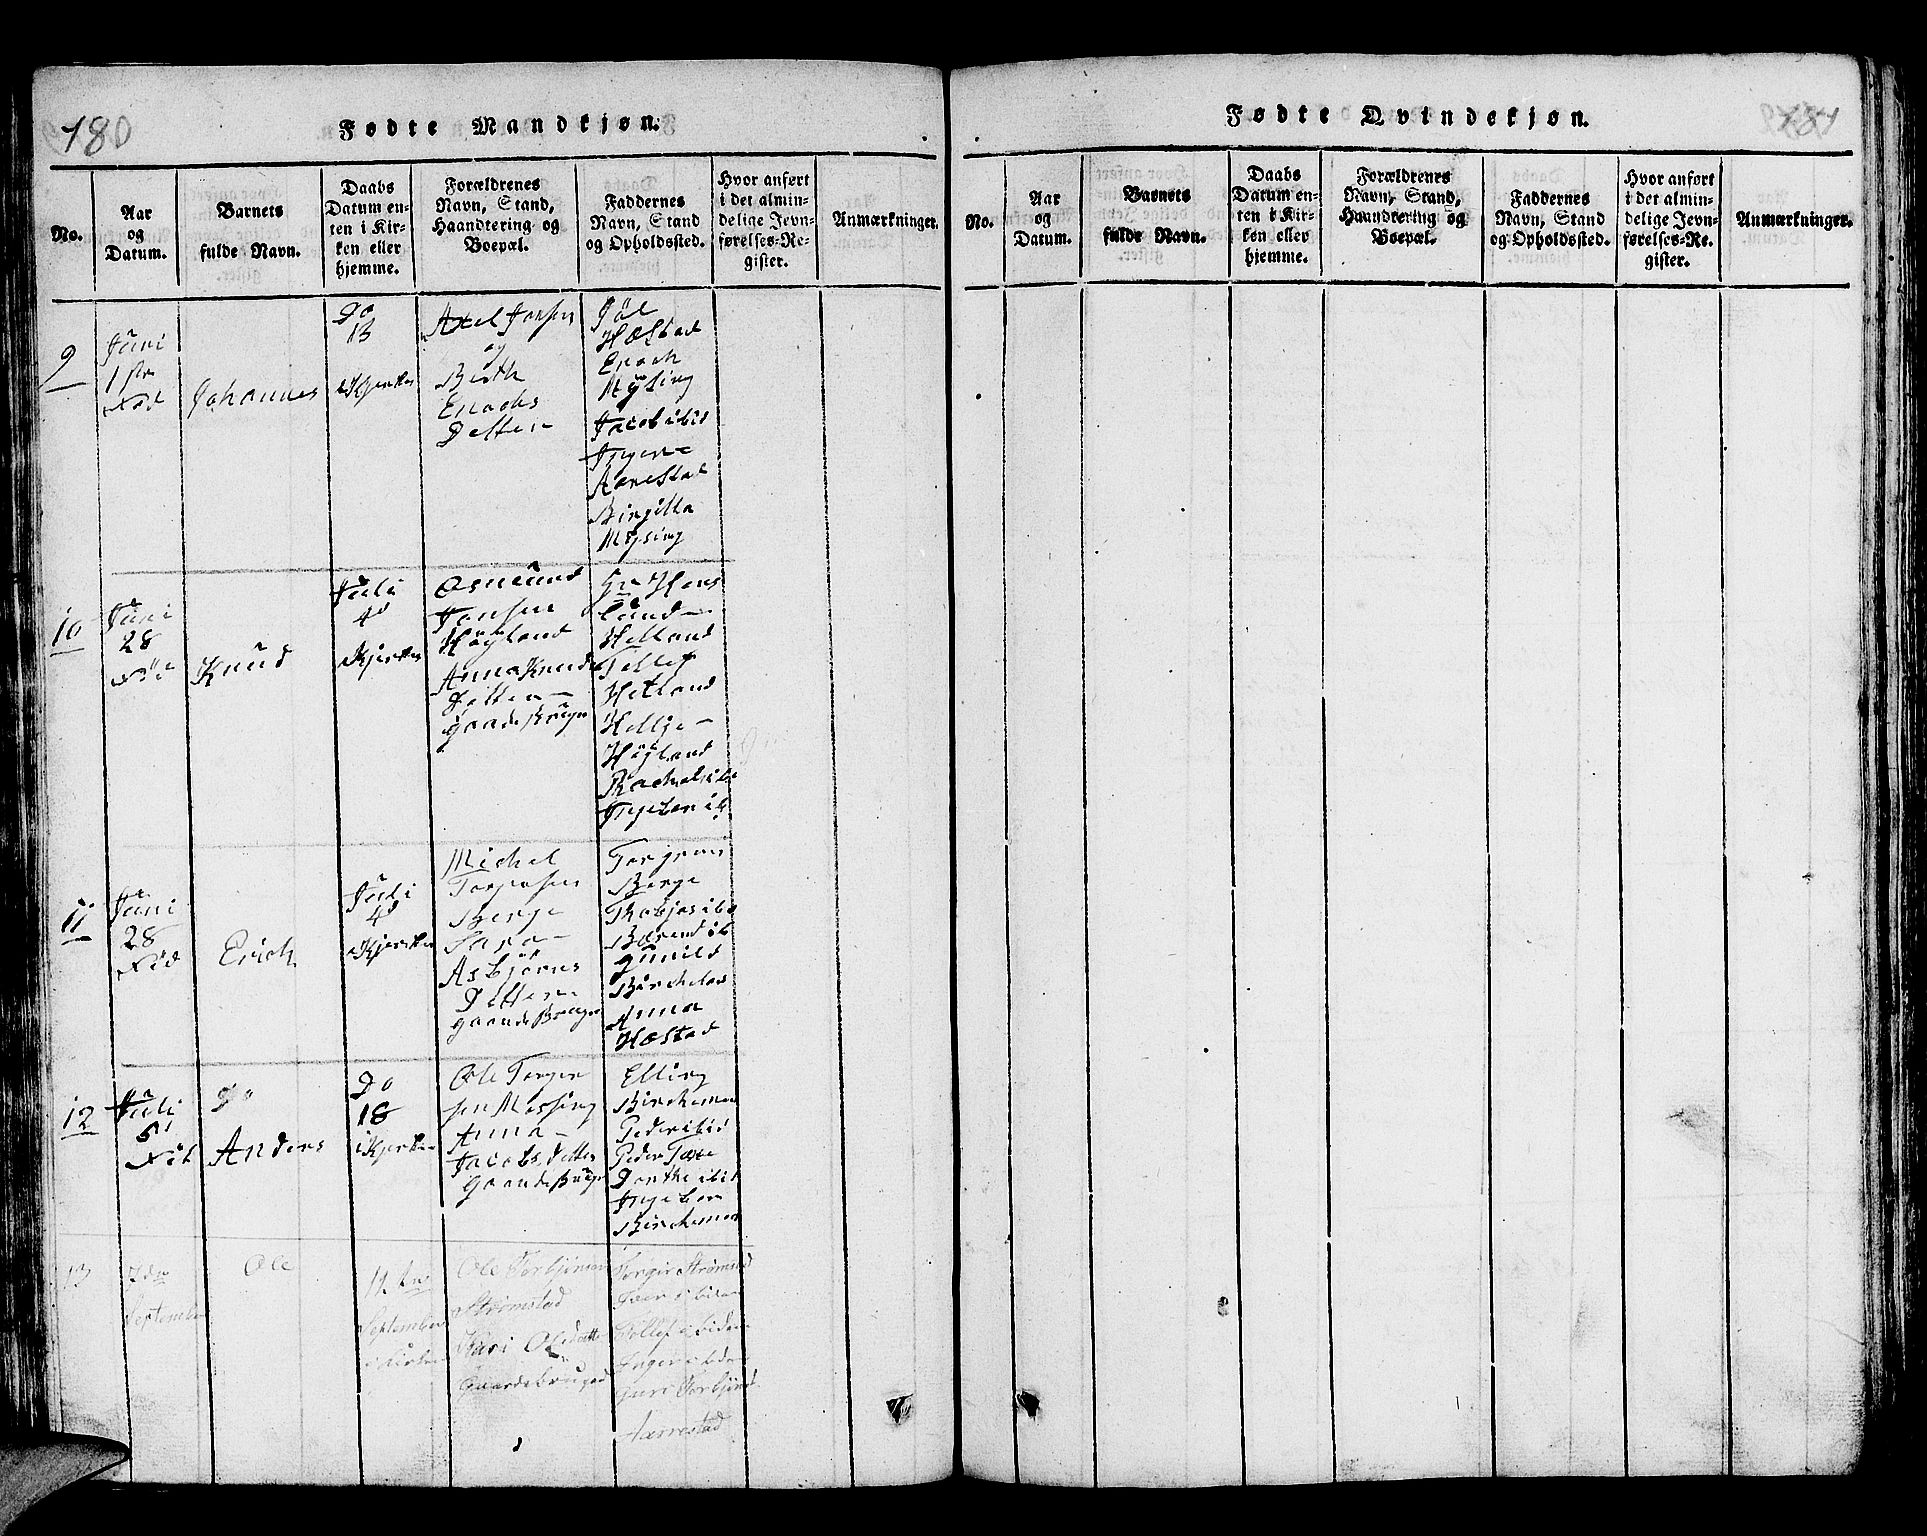 180
Fødte Mandkjøn.
No.
Aar
og
Datum.
Barnets
fulde Navn.
Daabs
Datum en-
ten i Kir-
ken eller
hjemme.
Forældrenes
Navn, Stand,
Haandtering og
Boepæl.
Faddernes
Navn, Stand
og Opholdssted.
Hvor anført
i det almin-
delige Jevn-
førelses-Re-
gister.
Anmærkninger.
9
Juni
1ste
Johannes
Do
13
i Kjerken
Axel Jonsen
og
Berth
Enochs
Detter
Joel
Hæstad
Enoch
Mysing
Jacob ibid
Inger
Aarestad
Birgitta
Mysing
10
Juni
28
Knud
Juli
4d
i Kjerken
Osmund
Jonsen
Høyland
Anna Knuds
Detter
Gaardsbruger
Helland
Tellef
Hetland
Hellje
Høyland
Rachel ibi
Ingebor ib
11
Juni
28
Erich
Juli
4d
i Kjerken
Michel
Torgersen
Berge
Sara
Asbjørns
Detter
Gaardsbruger
Torgrim
Berge
Thobjør ibi
Bærend ib
Gunild
Birkeland
Anna
Hæstad
12
Juli
5t
Do
Anders
Do
18
i Kjerken
Ole Torger
sen Messing
Anna
Jacobs Detter
Gaardsbruger
Elling
Birchemoe
Peder ibid
Peder Tøxe
Dorthe ibid
Ingebor
Birchemoe
13
7de
September
Ole
12te
September
i Kirken
Ole Torbjörnsen
Strømstad
Kari Olsdatter
Gaardsbruger
Torgir Strømstad
Iver ibidem
Tollef ibidem
Inger ibidem
Guri Torbjörnsd
Aarrestad
181
Fødte Qvindekjøn.
No.
Aar
og
Datum.
Barnets
fulde Navn.
Daabs
Datum en-
ten i Kir-
ken eller
hjemme.
Forældrenes
Navn, Stand,
Haandtering og
Boepæl.
Faddernes
Navn, Stand
og Opholdssted.
Hvor anført
i det almin-
delige Jevn-
førelses-Re-
gister.
Anmærkninger.